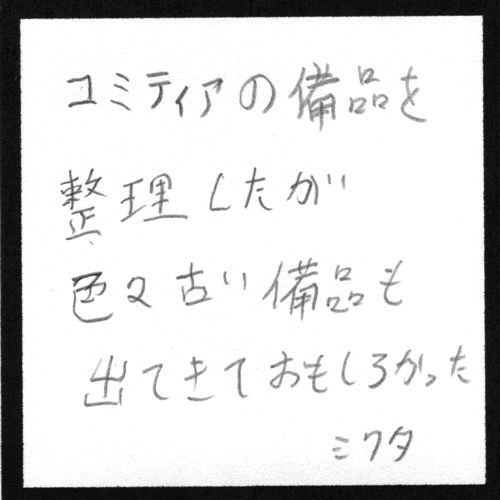 コミティアの備品を
整理したが
色々古い備品も
出てきておもしろかった
ミワタ